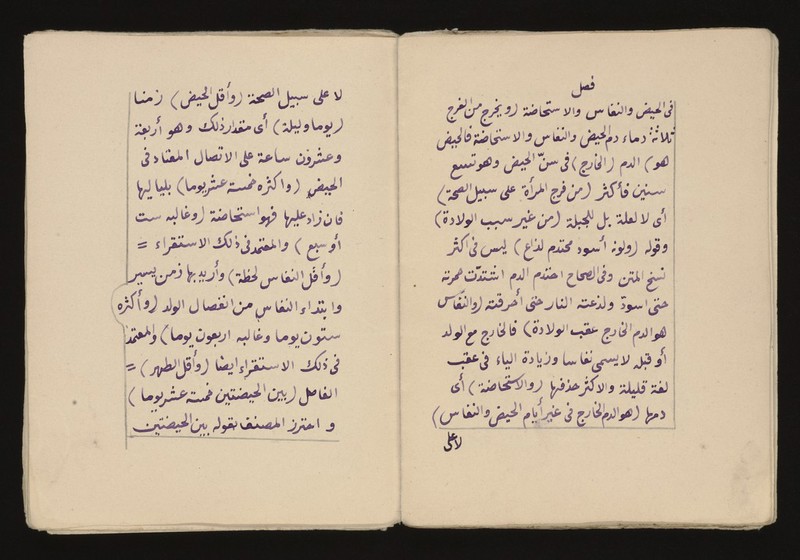 فصل
فى الحيض والنفاس والاستحاضة (ويخرج من الفرج
ثلاثة دماء دم الحيض والنفاس والاستحاضة فالحيض
هو) الدم (الخارج) فى سنّ الحيض وهو تسع
سنين فأكثر (من فرج المرأة على سبيل الصحة)
أى لا لعلة بل للجبلة (من غير سبب الولادة)
وقوله (ولونه أسود محتدم لذاع) ليس فى اكثر
نسخ المتن وفى الصحاح احتدم الدم اشتدّت حمرته
حتى اسودّ ولذعته النار حتى أحرقته (والنّفاس
هو الدم الخارج عقب الولادة) فالخارج مع الولد
أو قبله لا يسمى نفاسا وزيادة الياء فى عقب
لغة قليلة والاكثر حذفها (والاستحاضة) أى
دمها (هو الدم الخارج فى غير أيام الحيض والنفاس)
لا على
لا على سبيل الصحة (وأقل الحيض) زمنا
(يوما وليلة) أى مقدار ذلك وهو أربعة
وعشرون ساعة على الاتصال المعتاد فى
الحيض (واكثره خمسة عشر يوما) بلياليها
فان زاد عليها فهو استحاضة (وغالبه ست
أو سبع) والمعتمد فى ذلك الاستقراء =
(وأقل النفاس لحظة) وأريد بها زمن يسير
وابتداء النفاس من انفصال الولد (وأكثره
ستون يوما وغالبه اربعون يوما) والمعتمد
فى ذلك الاستقراء ايضا (وأقل الطهر) =
الفاصل (بين الحيضتين خمسة عشر يوما)
واحترز المصنف بقوله بين الحيضتين